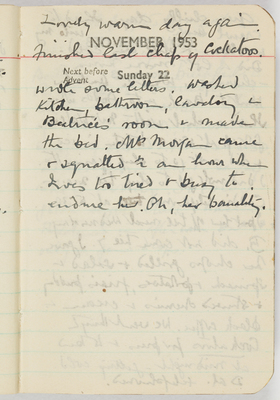 Lovely warm day again.
Finished last chap of Cockatoos
NOVEMBER 1953
Next before
Advent
Sunday 22
wrote some letters. Washed
kitchen, bathroom, laundry &
Beatrice's room & made
the bed. Mrs Morgan came
& squatted for an hour when
I was too tired & busy to
endure her. Oh, her banality.